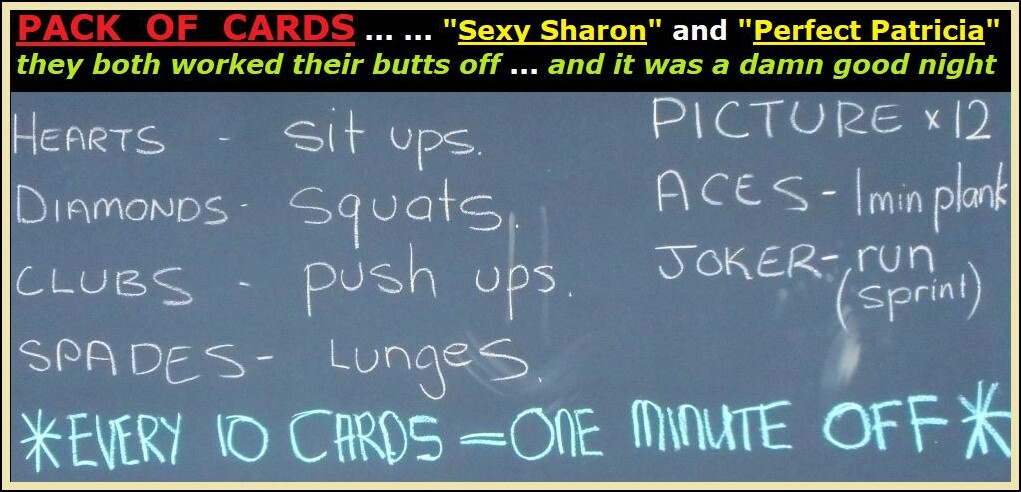 PACK OF CARDS ... ... "Sexy Sharon" and "Perfect Patricia"
they both worked their butts off ... and it was a damn good night
HEARTS - Sit ups.
DIAMONDS - Squats.
CLUBS - push ups.
SPADES - Lunges.
PICTURE x 12
ACES - 1 min plank
JOKER - run
(sprint)
*EVERY 10 CARDS = ONE MINUTE OFF*